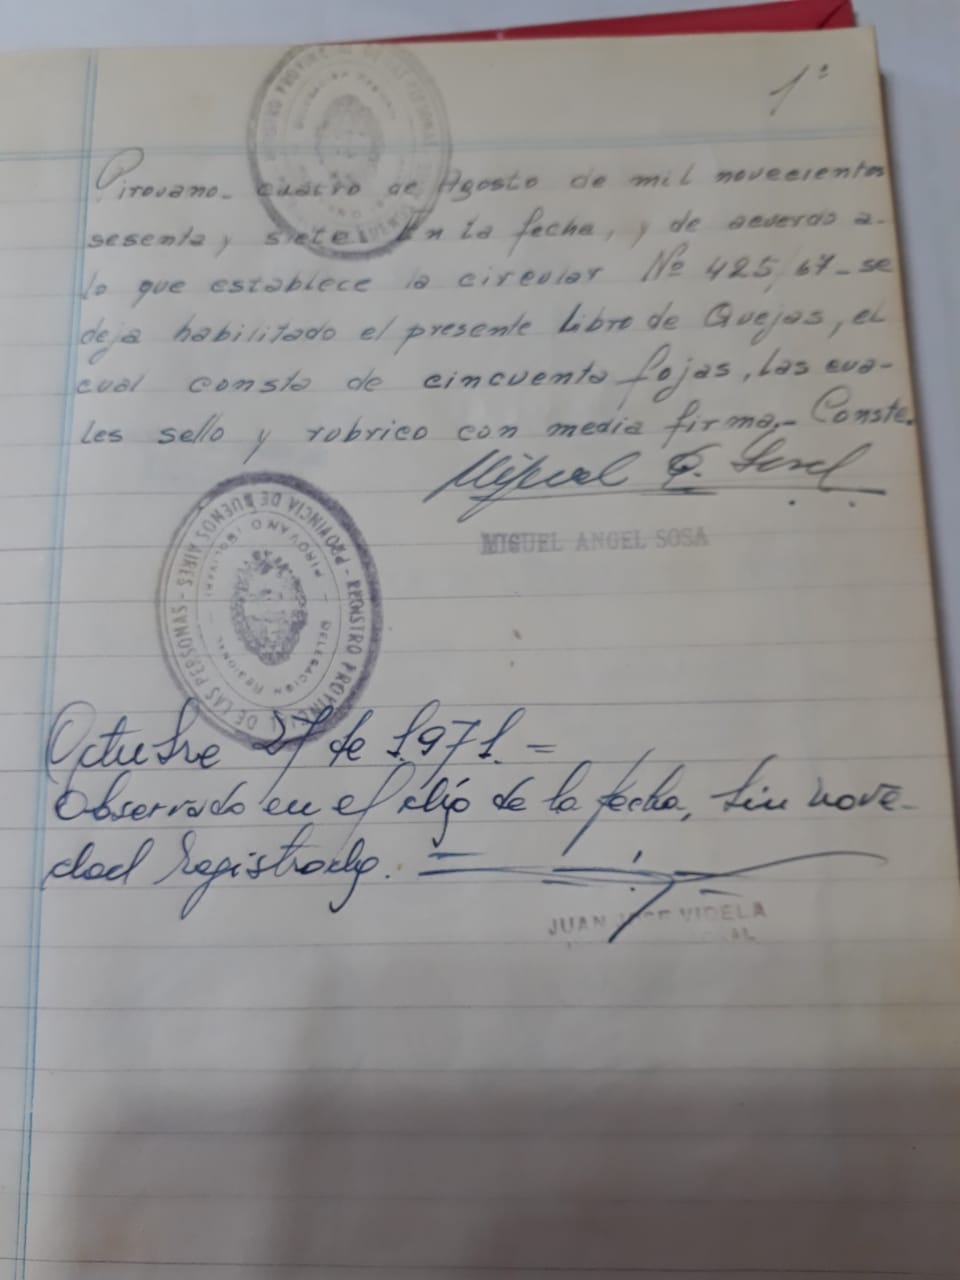 1°
Pirovano- cuatro de Agosto de mil novecientos
sesenta y siete. En la fecha, y de acuerdo a-
lo que establece la circular Nº 425/67- se
deja habilitado el presente Libro de Quejas, el
cual consta de cincuenta fojas, las cua-
les sello y rubrico con media firma.- Conste.
MIGUEL ANGEL SOSA
REGISTRO PROVINCIAL DE LAS PERSONAS - PROVINCIA DE BUENOS AIRES -
DELEGACION REGIONAL - PIROVANO (BOLIVAR)
Octubre 27 de 1.971.=
Observado en el día de la fecha, sin nove-
dad registrada.
JUAN JOSE VIDELA